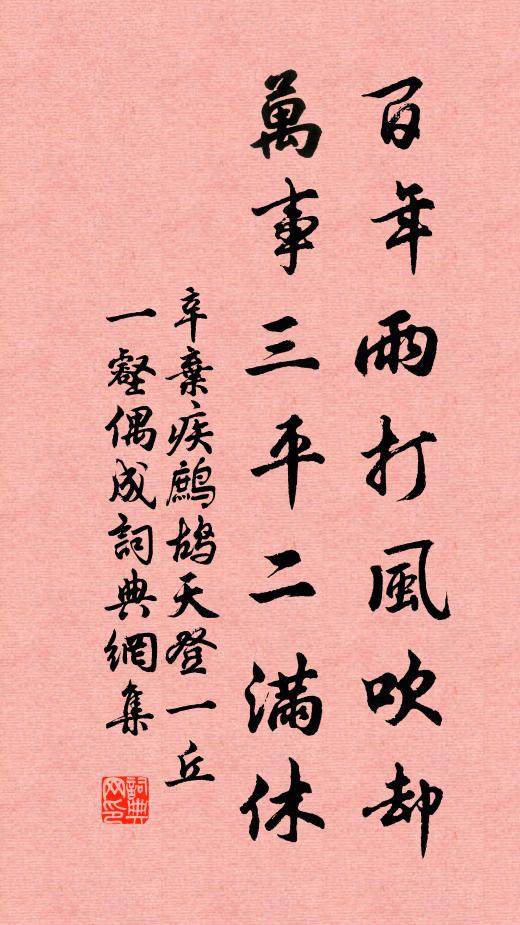 百年雨打風吹却
萬事三平二滿休
辛棄疾鷓鴣天登一丘
一壑偶成詞典網集
詞典
网印